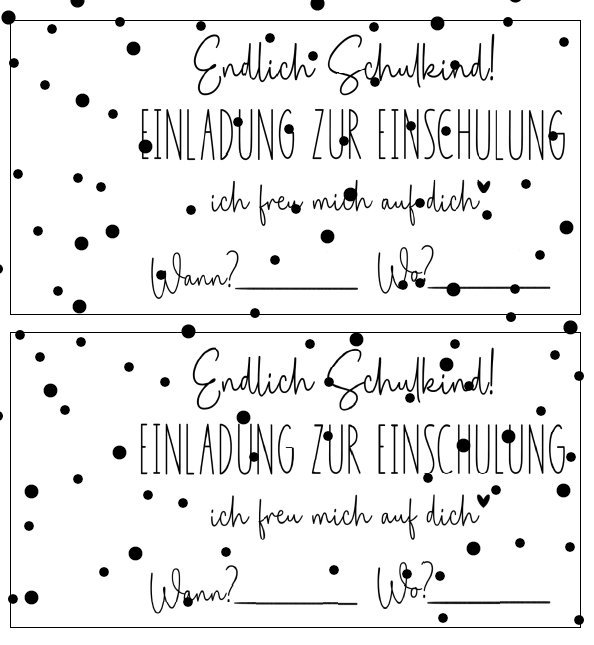 Endlich Schulkind!
EINLADUNG ZUR EINSCHULUNG
ich freu mich auf dich
Wann?__________ Wo?__________
Endlich Schulkind!
EINLADUNG ZUR EINSCHULUNG
ich freu mich auf dich
Wann?__________ Wo?__________